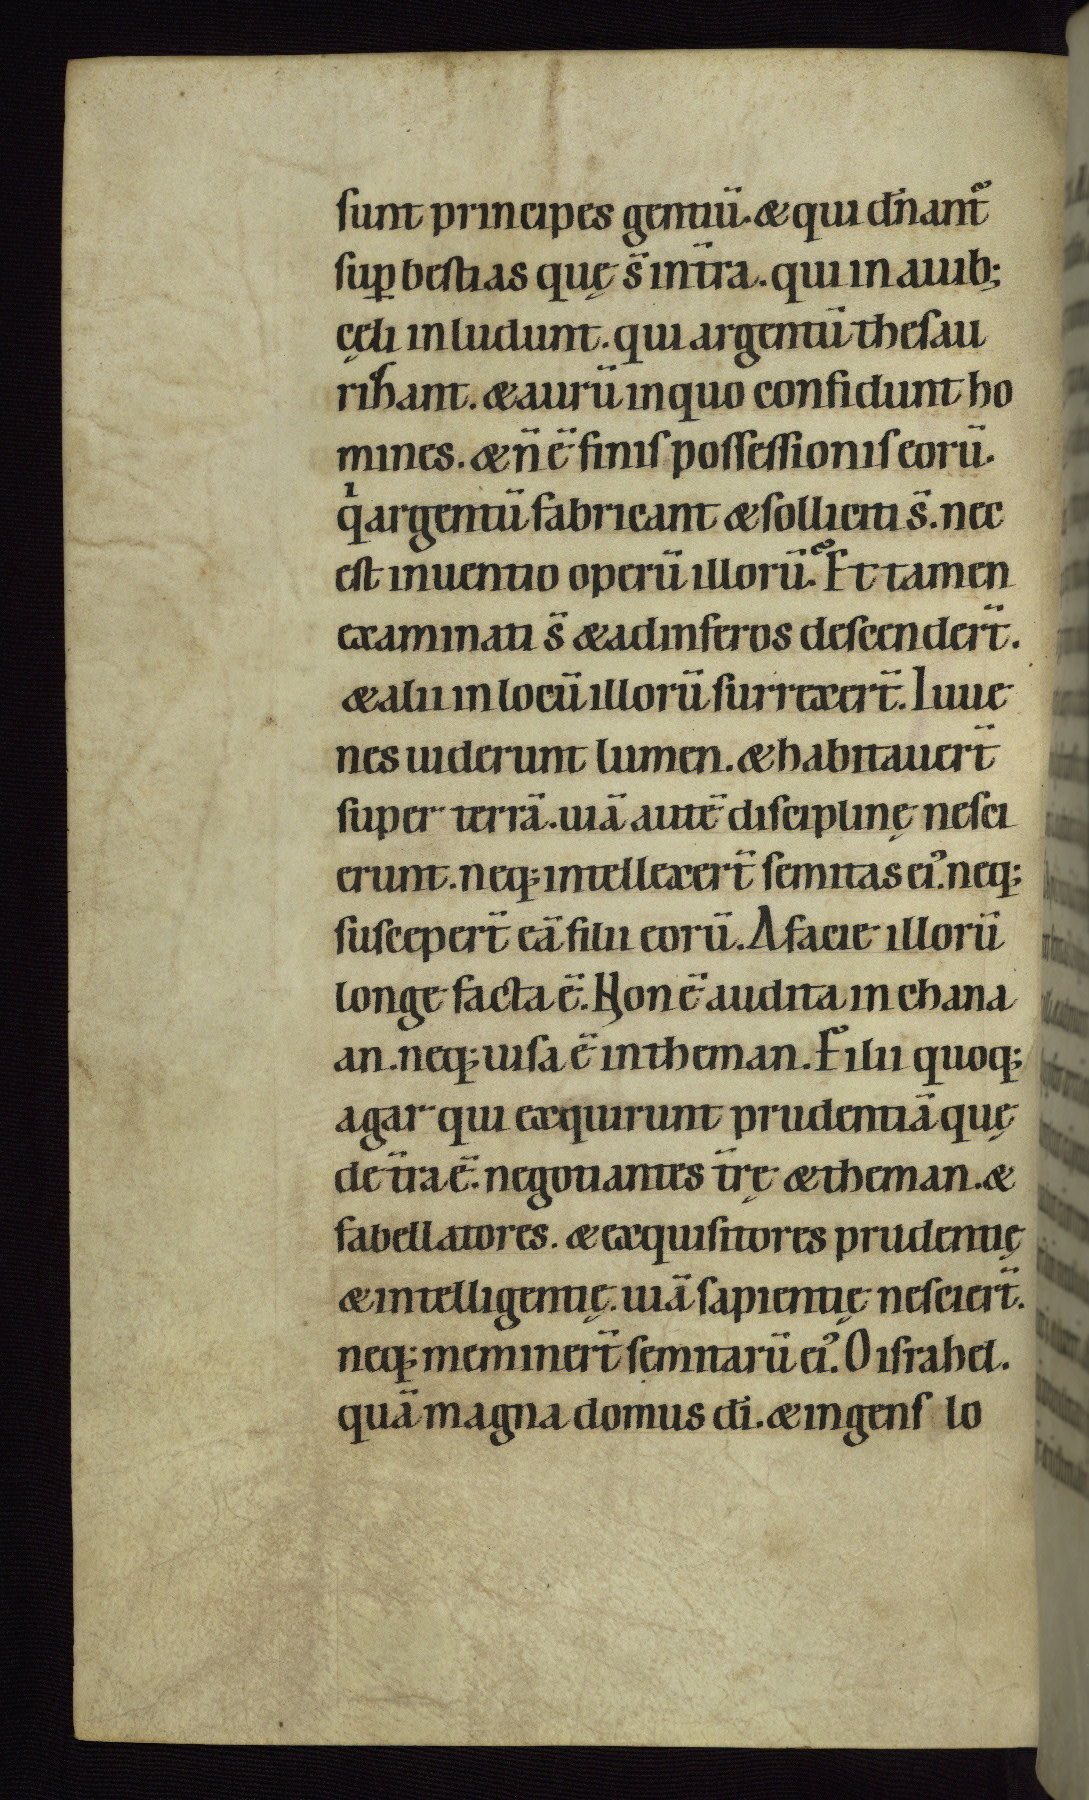 sunt principes gentiū. & qui dn̄ant᷑
suꝑ bestias quę s̄ int̄ra. qui in auib;
cęli inludunt. qui argentū thesau
rihant. & aurū inquo confidunt ho
mines. & n̄ ē finis possessionis eorū.
qͥ argentū fabricant & solliciti s̄. nec
est inuentio operū illorū. Et tamen
examinati s̄ & adinferos descendert̄.
& alii in locū illorū surrexert̄. Iuue
nes uiderunt lumen. & habitauert̄
super terrā. uiā autē disciplinę nesci
erunt. neq; intellexert̄ semitas ei᾽. neq;
suscepert̄ eā filii eorū. A facie illorū
longe facta ē. Non ē audita in chana
an. neq; uisa ē intheman. Filii quoq;
agar qui exquirunt prudentiā quę
de t̄ra ē. negotiantes t̄rę & theman. &
fabellatores. & exquisitores prudentię
& intelligentię. uiā sapientię nesciert̄.
neq; meminert̄ semitarū ei᾽. O israhel.
quā magna domus dī. & ingens lo